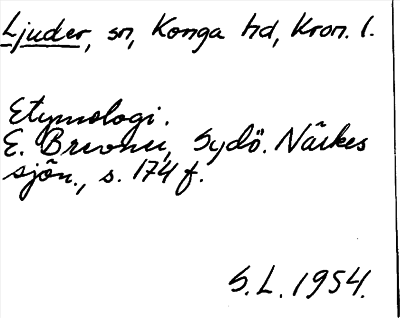 Ljuder, sn, Konga hd, Kron. l.
Etymologi.
E. Brevner, Sydö. Närkes
sjön., s. 174 f.
S.L. 1954.